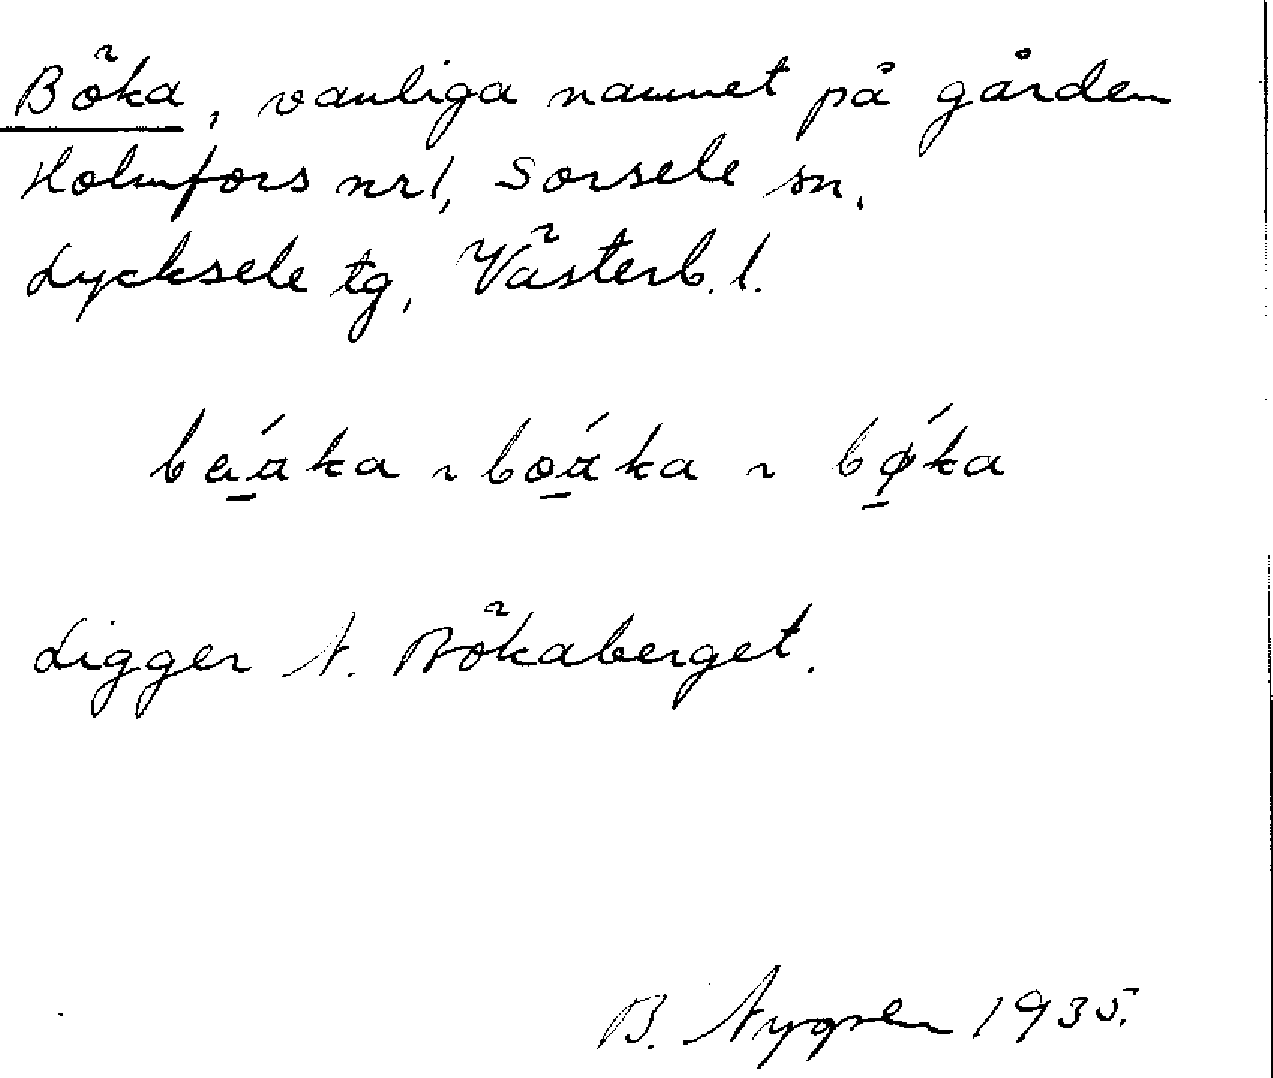 Böka, vanliga namnet på gården
Holmfors nr 1, Sorsele sn,
Lycksele tg, Västerb. l.
beá̱̱ka ~ boá̱̱ka ~ bǿ̱ka
Ligger N. Bökaberget.
B. Nygren 1935.